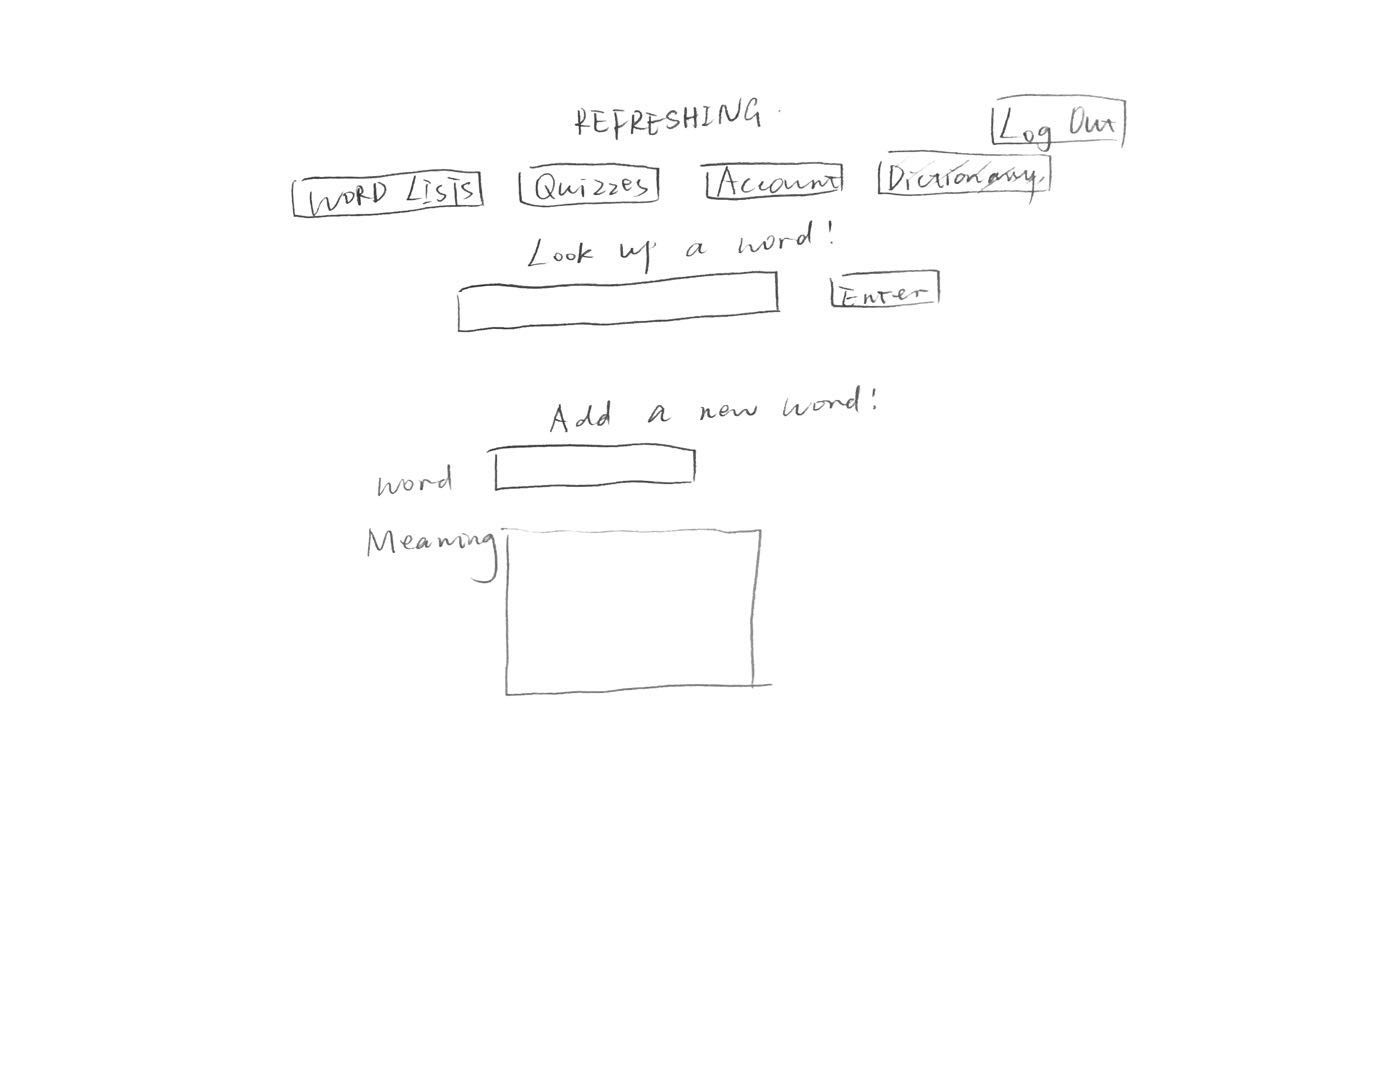 REFRESHING
Log Out
WORD LISTS Quizzes Account Dictionary
Look up a word!
Enter
Add a new word!
word
Meaning